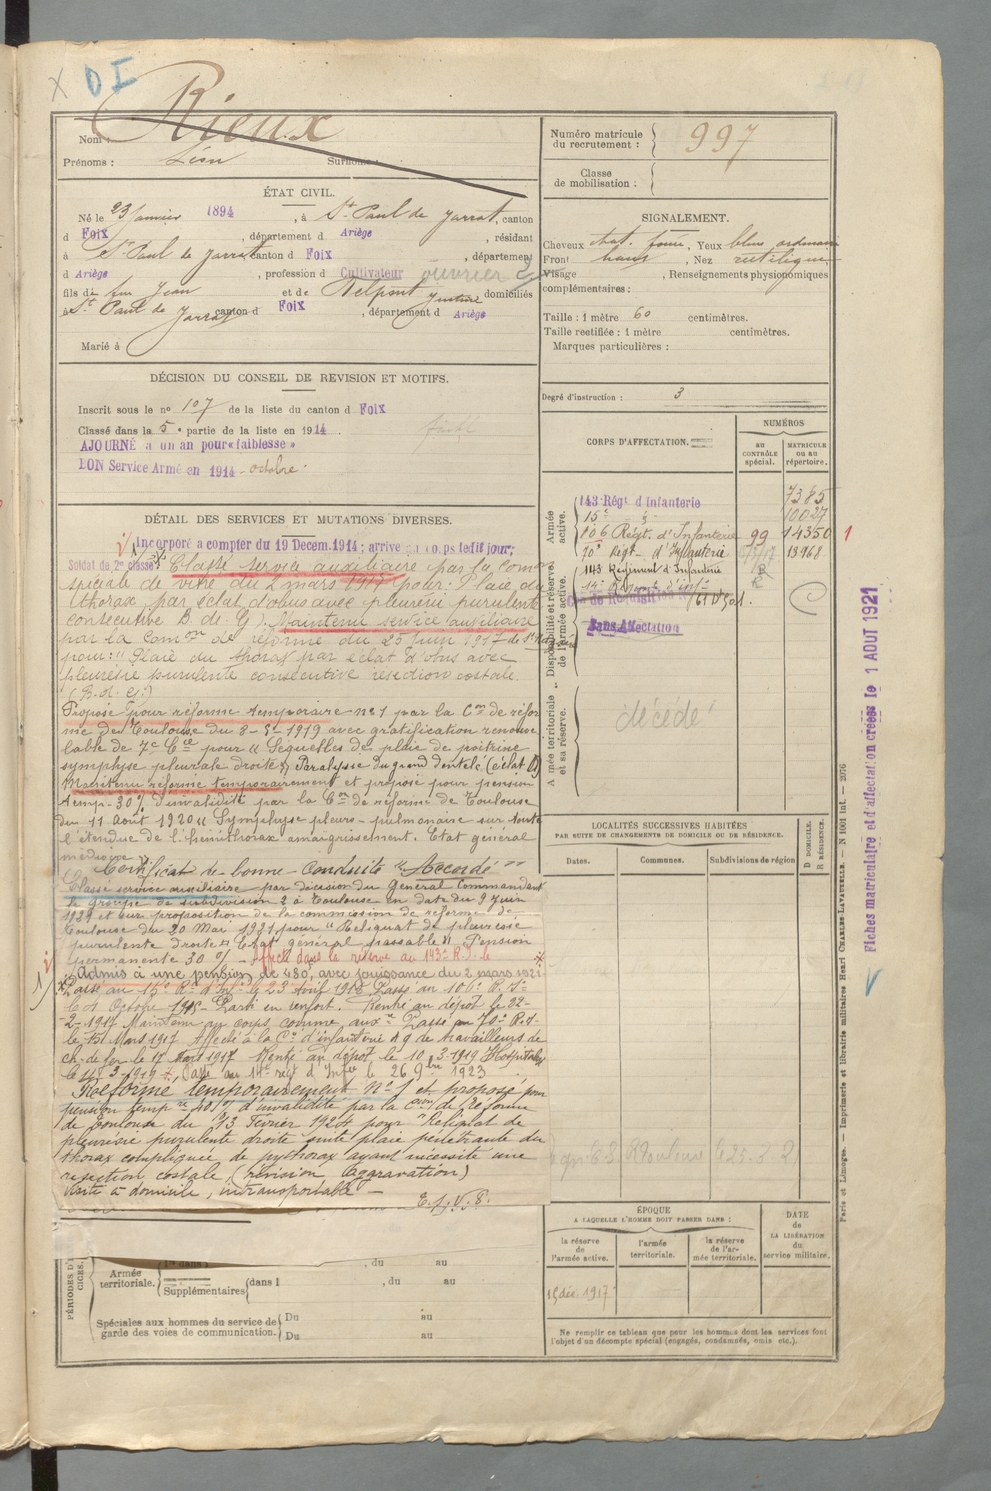 X DI
Nom : Rieux
Prénoms : Léon Surnoms :
ÉTAT CIVIL.
Né le 23 Janvier 1894, à St Paul de Jarrat, canton
d Foix, département d Ariège, résidant
à St Paul de Jarrat canton d Foix, département
d Ariège, profession d Cultivateur ouvrier
fils de feu Jean et de Delpont domiciliés
à St Paul de Jarrat canton d Foix, département d Ariège
Marié à
DÉCISION DU CONSEIL DE REVISION ET MOTIFS.
Inscrit sous le no 107 de la liste du canton d Foix
Classé dans la 5e partie de la liste en 1914.
AJOURNÉ à un an pour « faiblesse »
BON Service Armé en 1914 - octobre.
DÉTAIL DES SERVICES ET MUTATIONS DIVERSES.
Incorporé a compter du 19 Décem. 1914; arrivé au corps ledit jour;
Soldat de 2e classe. Classé service auxiliaire par la Com
spéciale de du 2 mars 1917 pour : Plaie du
thorax par éclat d'obus avec pleurésie purulente
consécutive B. de G. Maintenu service auxiliaire
par la Comon de réforme du 25 juin 1917 de St
pour : " Plaie du thorax par éclat d'obus avec
pleurésie purulente consécutive résection costale.
(B. d. G.)
Proposé pour réforme temporaire no 1 par la Con de réfor
me de Toulouse du 8-5-1919 avec gratification renouve
lable de 7e Cie pour " Séquelles de plaie de poitrine
symphyse pleurale droite Paralysie du grand dentelé (éclat
Maintenu réforme temporairement et proposé pour pension
temp- 30% d'invalidité par la Con de réforme de Toulouse
du 11 août 1920 " Symphyse pleuro-pulmonaire sur toute
l'étendue de l'hémithorax amaigrissement. Etat général
médiocre "
Certificat de bonne conduite " Accordé "
Classé service auxiliaire par décision du Général Commandant
le groupe de subdivision 2 à Toulouse en date du 9 juin
1921 et sur proposition de la commission de réforme de
Toulouse du 20 Mai 1921 pour " Reliquat de pleurésie
purulente droite Etat général passable " Pension
permanente 30% - Affecté dans la réserve au 143e R.I. le
Admis à une pension de 480, avec jouissance du 2 mars 1921
Passé au 15e Rt d'Inf. le 23 Avril 1915 Passé au 106e R. Ie
le Octobre 1915 - Parti en renfort. Rentré au dépôt le 22-
-2-1917 Maintenu au corps comme auxre Passé au 70e R.I.
le 15 Mars 1917 Affecté à la Cie d'infanterie A 9 de travailleurs de
ch. de fer le 17 Mars 1917 Rentré au dépôt le 10-3-1919 Hospitalisé
le 3-1919. Passé au 14e régt d'Infie le 26 9bre 1923
Réformé temporairement No 1 et proposé pour
pension tempre 40% d'invalidité par la Con de Réforme
de Toulouse du 13 Février 1924 pour " Reliquat de
pleurésie purulente droite suite plaie pénétrante du
thorax compliquée de pyothorax ayant nécessité une
résection costale, (révision Aggravation)
visite à domicile, intransportable -
PÉRIODES D'
CICES.
Armée territoriale.
1re dans l , du au
Supplémentaires dans l , du au
Spéciales aux hommes du service de garde des voies de communication.
Du au
Du au
Numéro matricule du recrutement : 997
Classe de mobilisation :
SIGNALEMENT.
Cheveux chat. foncé, Yeux bleu
Front haut, Nez rectiligne
Visage , Renseignements physionomiques
complémentaires :
Taille : 1 mètre 60 centimètres.
Taille rectifiée : 1 mètre centimètres.
Marques particulières :
Degré d'instruction : 3
CORPS D'AFFECTATION.
NUMÉROS
AU CONTRÔLE spécial.
MATRICULE OU AU répertoire.
Armée active.
143 Régt d'Infanterie 7385
15e 10027
106 Régt. d'Infanterie 99 14350 1
70e Régt d'Infanterie 13968
143 Régiment d'Infanterie
Sans Affectation
Disponibilité et réserve de l'armée active.
Armée territoriale et sa réserve.
décédé
LOCALITÉS SUCCESSIVES HABITÉES
PAR SUITE DE CHANGEMENTS DE DOMICILE OU DE RÉSIDENCE.
Dates.
Communes.
Subdivisions de région
D DOMICILE.
R RÉSIDENCE.
ÉPOQUE
A LAQUELLE L'HOMME DOIT PASSER DANS :
la réserve de l'armée active.
l'armée territoriale.
la réserve de l'armée territoriale.
DATE de LA LIBÉRATION du service militaire.
15 déc 1917
Ne remplir ce tableau que pour les hommes dont les services font
l'objet d'un décompte spécial (engagés, condamnés, omis etc.).
Paris et Limoges. — Imprimerie et librairie militaires Henri CHARLES-LAVAUZELLE. — N 1001 Int. — 2076
Fiches matriculaire et d'affectation créées le 1 AOUT 1921